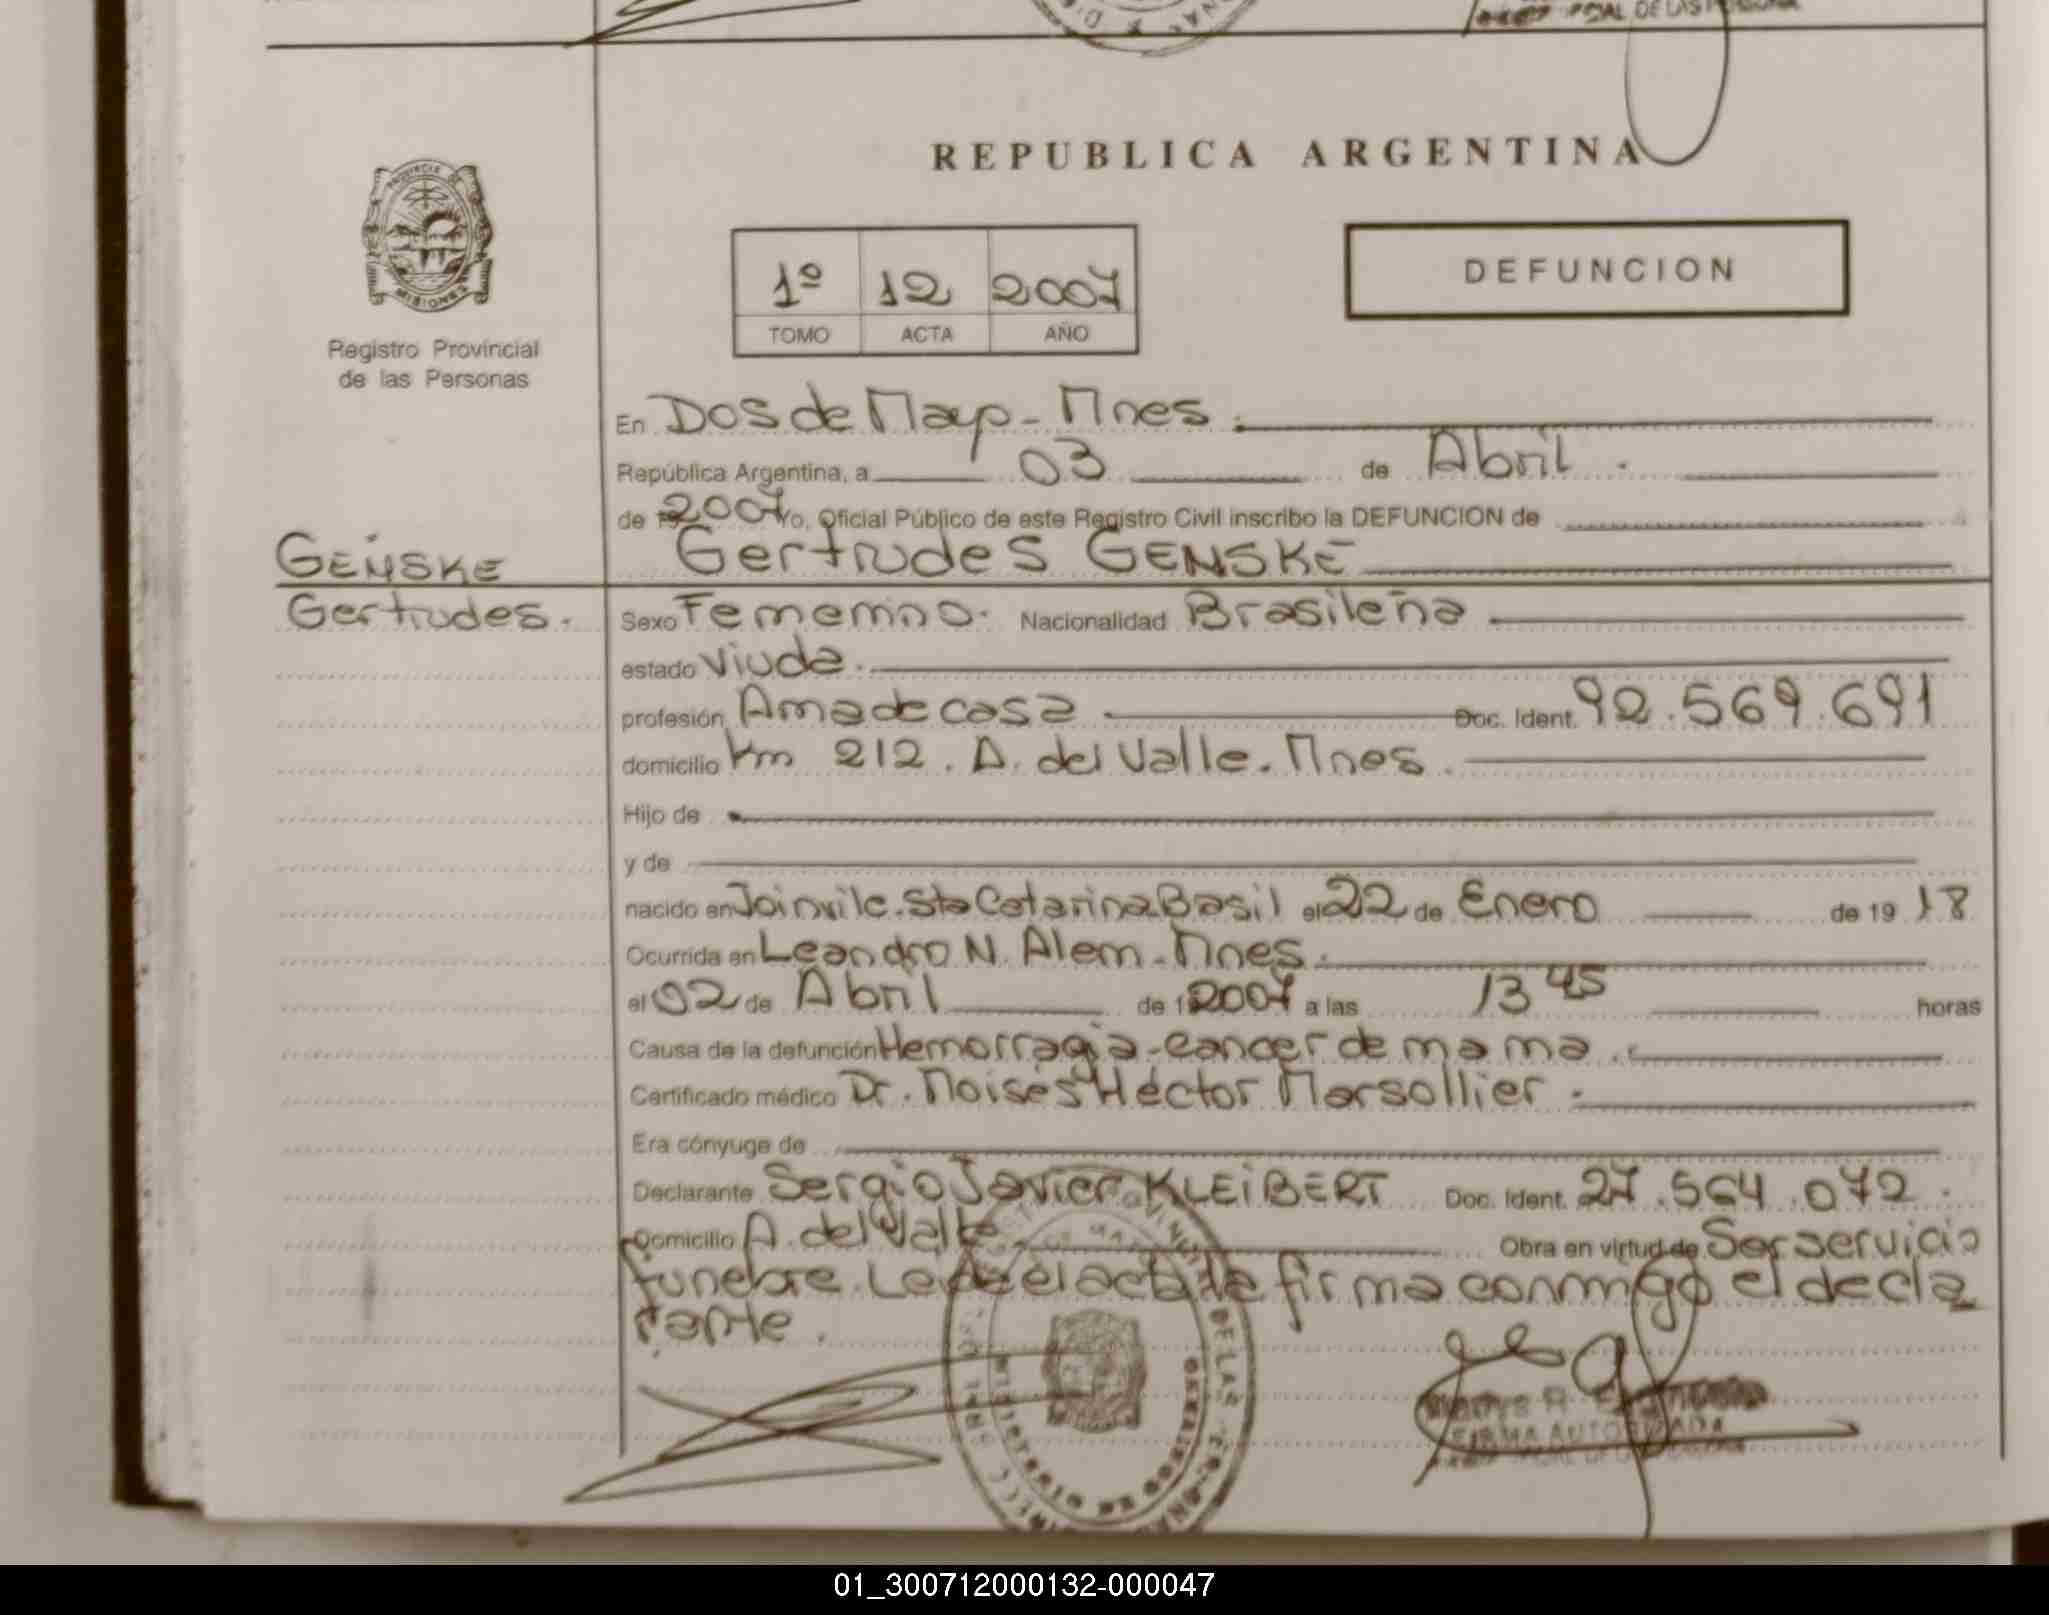 REPUBLICA ARGENTINA
PROVINCIA DE
MISIONES
Registro Provincial
de las Personas
1º 12 2007
TOMO ACTA AÑO
DEFUNCION
En Dos de Mayo - Mnes.
República Argentina, a 03 de Abril.
de 2007 Yo, Oficial Público de este Registro Civil inscribo la DEFUNCION de
GENSKE Gertrudes GENSKE
Gertrudes. Sexo Femenino. Nacionalidad Brasileña
estado Viuda.
profesión Ama de casa Doc. Ident. 92.569.691
domicilio Km 212. A. del Valle. Mnes.
Hijo de
y de
nacido en Joinvile. Sta Catarina Basil el 22 de Enero de 19 18
Ocurrida en Leandro N. Alem - Mnes.
el 02 de Abril de 2007 a las 13 45 horas
Causa de la defunción Hemorragia - cancer de mama.
Certificado médico Dr. Moisés Héctor Marsollier.
Era cónyuge de
Declarante Sergio Javier KLEiBERT Doc. Ident. 27.564.072.
Domicilio A. del Valle Obra en virtud de Ser servicio
funebre. Leida el acta la firma conmigo el decla
rante.
FIRMA AUTORIZADA
01_300712000132-000047